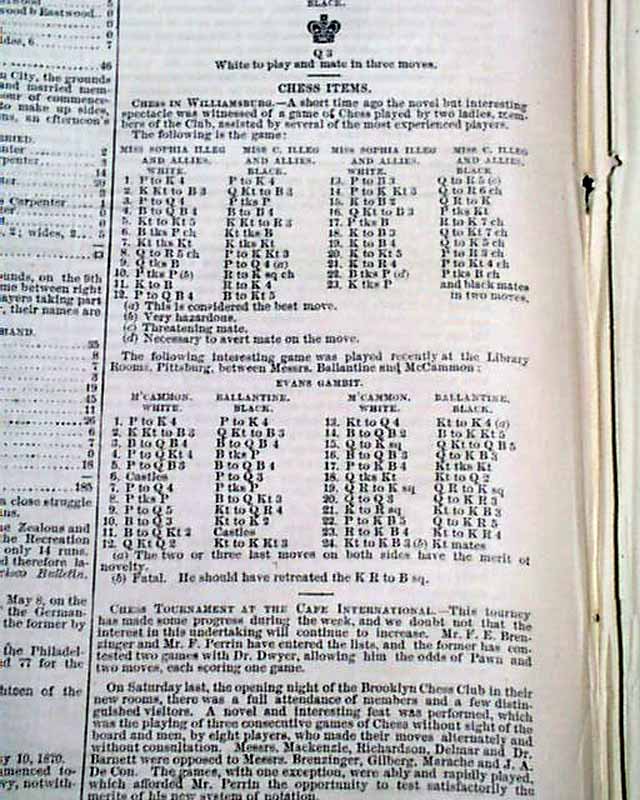 BLACK.
Q 3
White to play and mate in three moves.
CHESS ITEMS.
CHESS IN WILLIAMSBURG.—A short time ago the novel but interesting
spectacle was witnessed of a game of Chess played by two ladies, mem-
bers of the Club, assisted by several of the most experienced players.
The following is the game:
MISS SOPHIA ILLEG MISS C. ILLEG MISS SOPHIA ILLEG MISS C. ILLEG
AND ALLIES. AND ALLIES. AND ALLIES. AND ALLIES.
WHITE. BLACK. WHITE. BLACK
1. P to K 4 P to K 4 13. P to B 3 Q to R 5 (c)
2. K Kt to B 3 Q Kt to B 3 14. P to K Kt 5 Q to R 6 ch
3. P to Q 4 P tks P 15. K to B 2 Q R to K
4. B to Q B 4 B to B 4 16. Q Kt to B 3 P tks Kt
5. Kt to Kt 5 K Kt to R 3 17. P tks B R to K 7 ch
6. B tks P ch Kt tks B 18. K to B 3 Q to Kt 7 ch
7. Kt tks Kt K tks Kt 19. K to B 4 Q to K 5 ch
8. Q to R 5 ch P to K Kt 3 20. K to Kt 5 P to R 3 ch
9. Q tks B P to Q 4 (a) 21. K to R 4 P to Kt 4 ch
10. P tks P (b) R to K sq ch 22. B tks P (d) P tks B ch
11. K to B R to K 4 23. K tks P and black mates
12. P to Q B 4 B to Kt 5 in two moves.
(a) This is considered the best move.
(b) Very hazardous.
(c) Threatening mate.
(d) Necessary to avert mate on the move.
The following interesting game was played recently at the Library
Rooms, Pittsburg, between Messrs. Ballantine and McCammon:
EVANS GAMBIT.
M'CAMMON. BALLANTINE. M'CAMMON. BALLANTINE.
WHITE. BLACK. WHITE. BLACK.
1. P to K 4 P to K 4 13. Kt to Q 4 Kt to K 4 (a)
2. K Kt to B 3 Q Kt to B 3 14. B to Q B 2 B to K Kt 5
3. B to Q B 4 B to Q B 4 15. Q to K sq Q Kt to Q B 5
4. P to Q Kt 4 B tks P 16. B to Q B 3 Q to K B 3
5. P to Q B 3 B to Q B 4 17. P to K B 4 Kt tks Kt
6. Castles P to Q 3 18. Q tks Kt Kt to Q 2
7. P to Q 4 P tks P 19. Q R to K sq Q R to K sq
8. P tks P B to Q Kt 3 20. Q to Q 3 Q to K R 3
9. P to Q 5 Kt to Q R 4 21. K to R sq Kt to K B 3
10. B to Q 3 Kt to K 2 22. P to K B 5 Q to K R 5
11. B to Q Kt 2 Castles 23. R to K B 4 Kt to K R 4
12. Q Kt Q 2 Kt to K Kt 3 24. Kt to K B 3 (b) Kt mates
(a) The two or three last moves on both sides have the merit of
novelty.
(b) Fatal. He should have retreated the K R to B sq.
CHESS TOURNAMENT AT THE CAFE INTERNATIONAL.—This tourney
has made some progress during the week, and we doubt not that the
interest in this undertaking will continue to increase. Mr. F. E. Bren-
zinger and Mr. F. Perrin have entered the lists, and the former has con-
tested two games with Dr. Dwyer, allowing him the odds of Pawn and
two moves, each scoring one game.
On Saturday last, the opening night of the Brooklyn Chess Club in their
new rooms, there was a full attendance of members and a few distin-
guished visitors. A novel and interesting feat was performed, which
was the playing of three consecutive games of Chess without sight of the
board and men, by eight players, who made their moves alternately and
without consultation. Messrs. Mackenzie, Richardson, Delmar and Dr.
Barnett were opposed to Messrs. Brenzinger, Gilberg, Marache and J. A.
De Con. The games, with one exception, were ably and rapidly played,
which afforded Mr. Perrin the opportunity to test satisfactorily the
merits of his new system of notation.